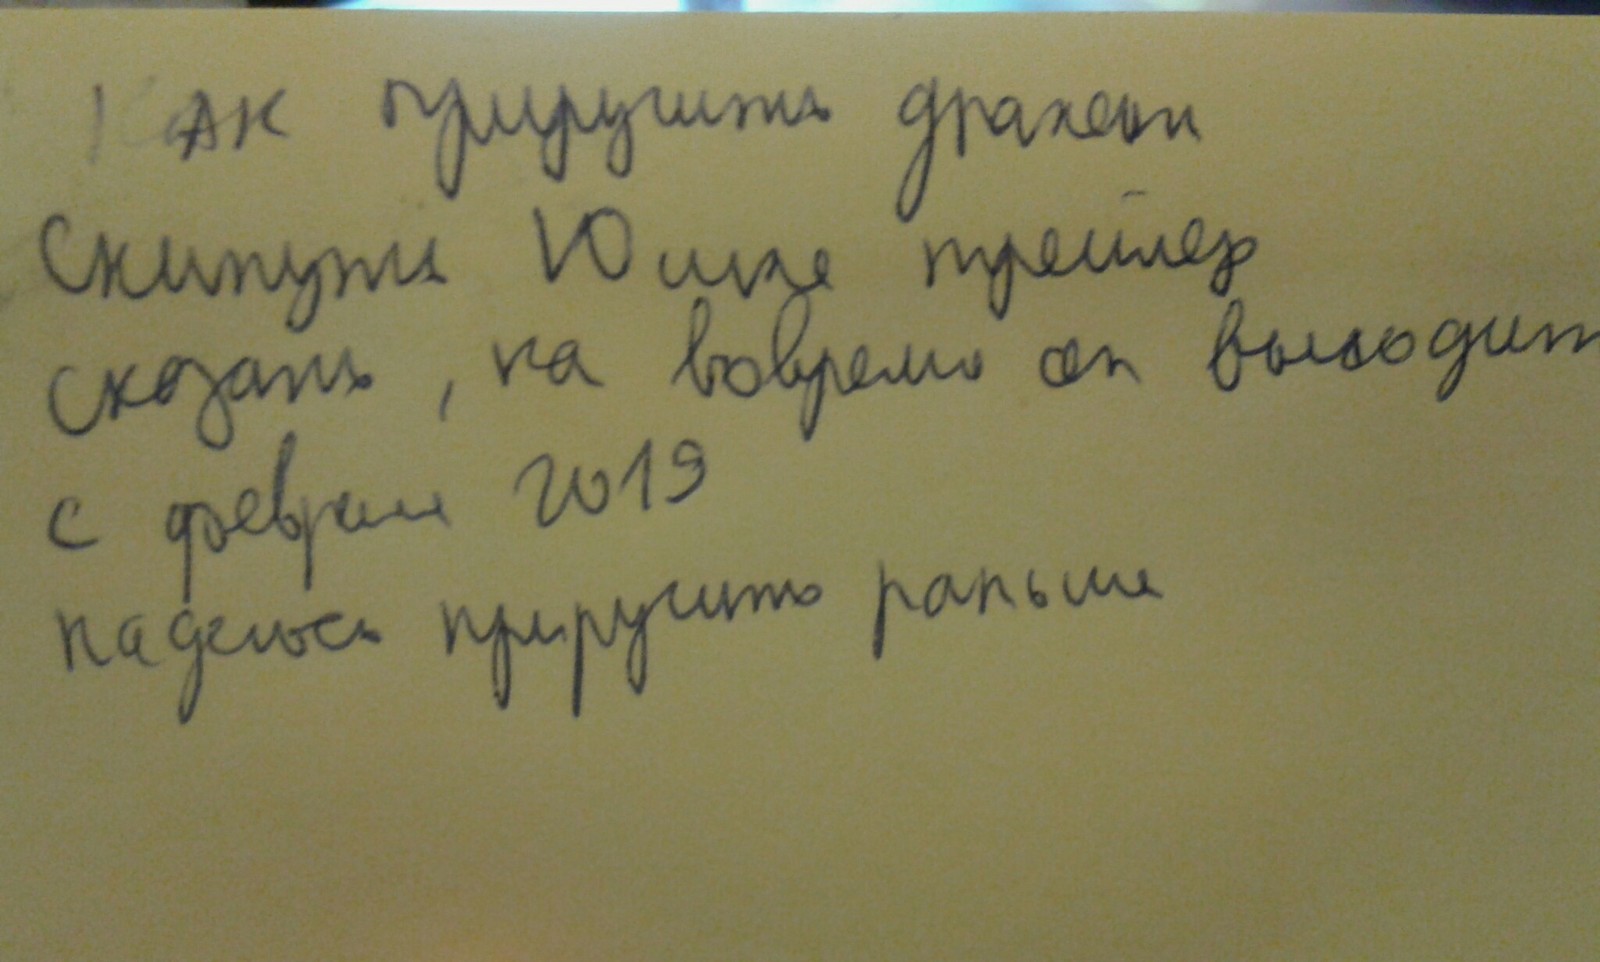 Как приручить дракона
Скинуть Юшке трейлер
сказать, на вовремя он выходит
с февраля 2019
надеюсь приручить раньше